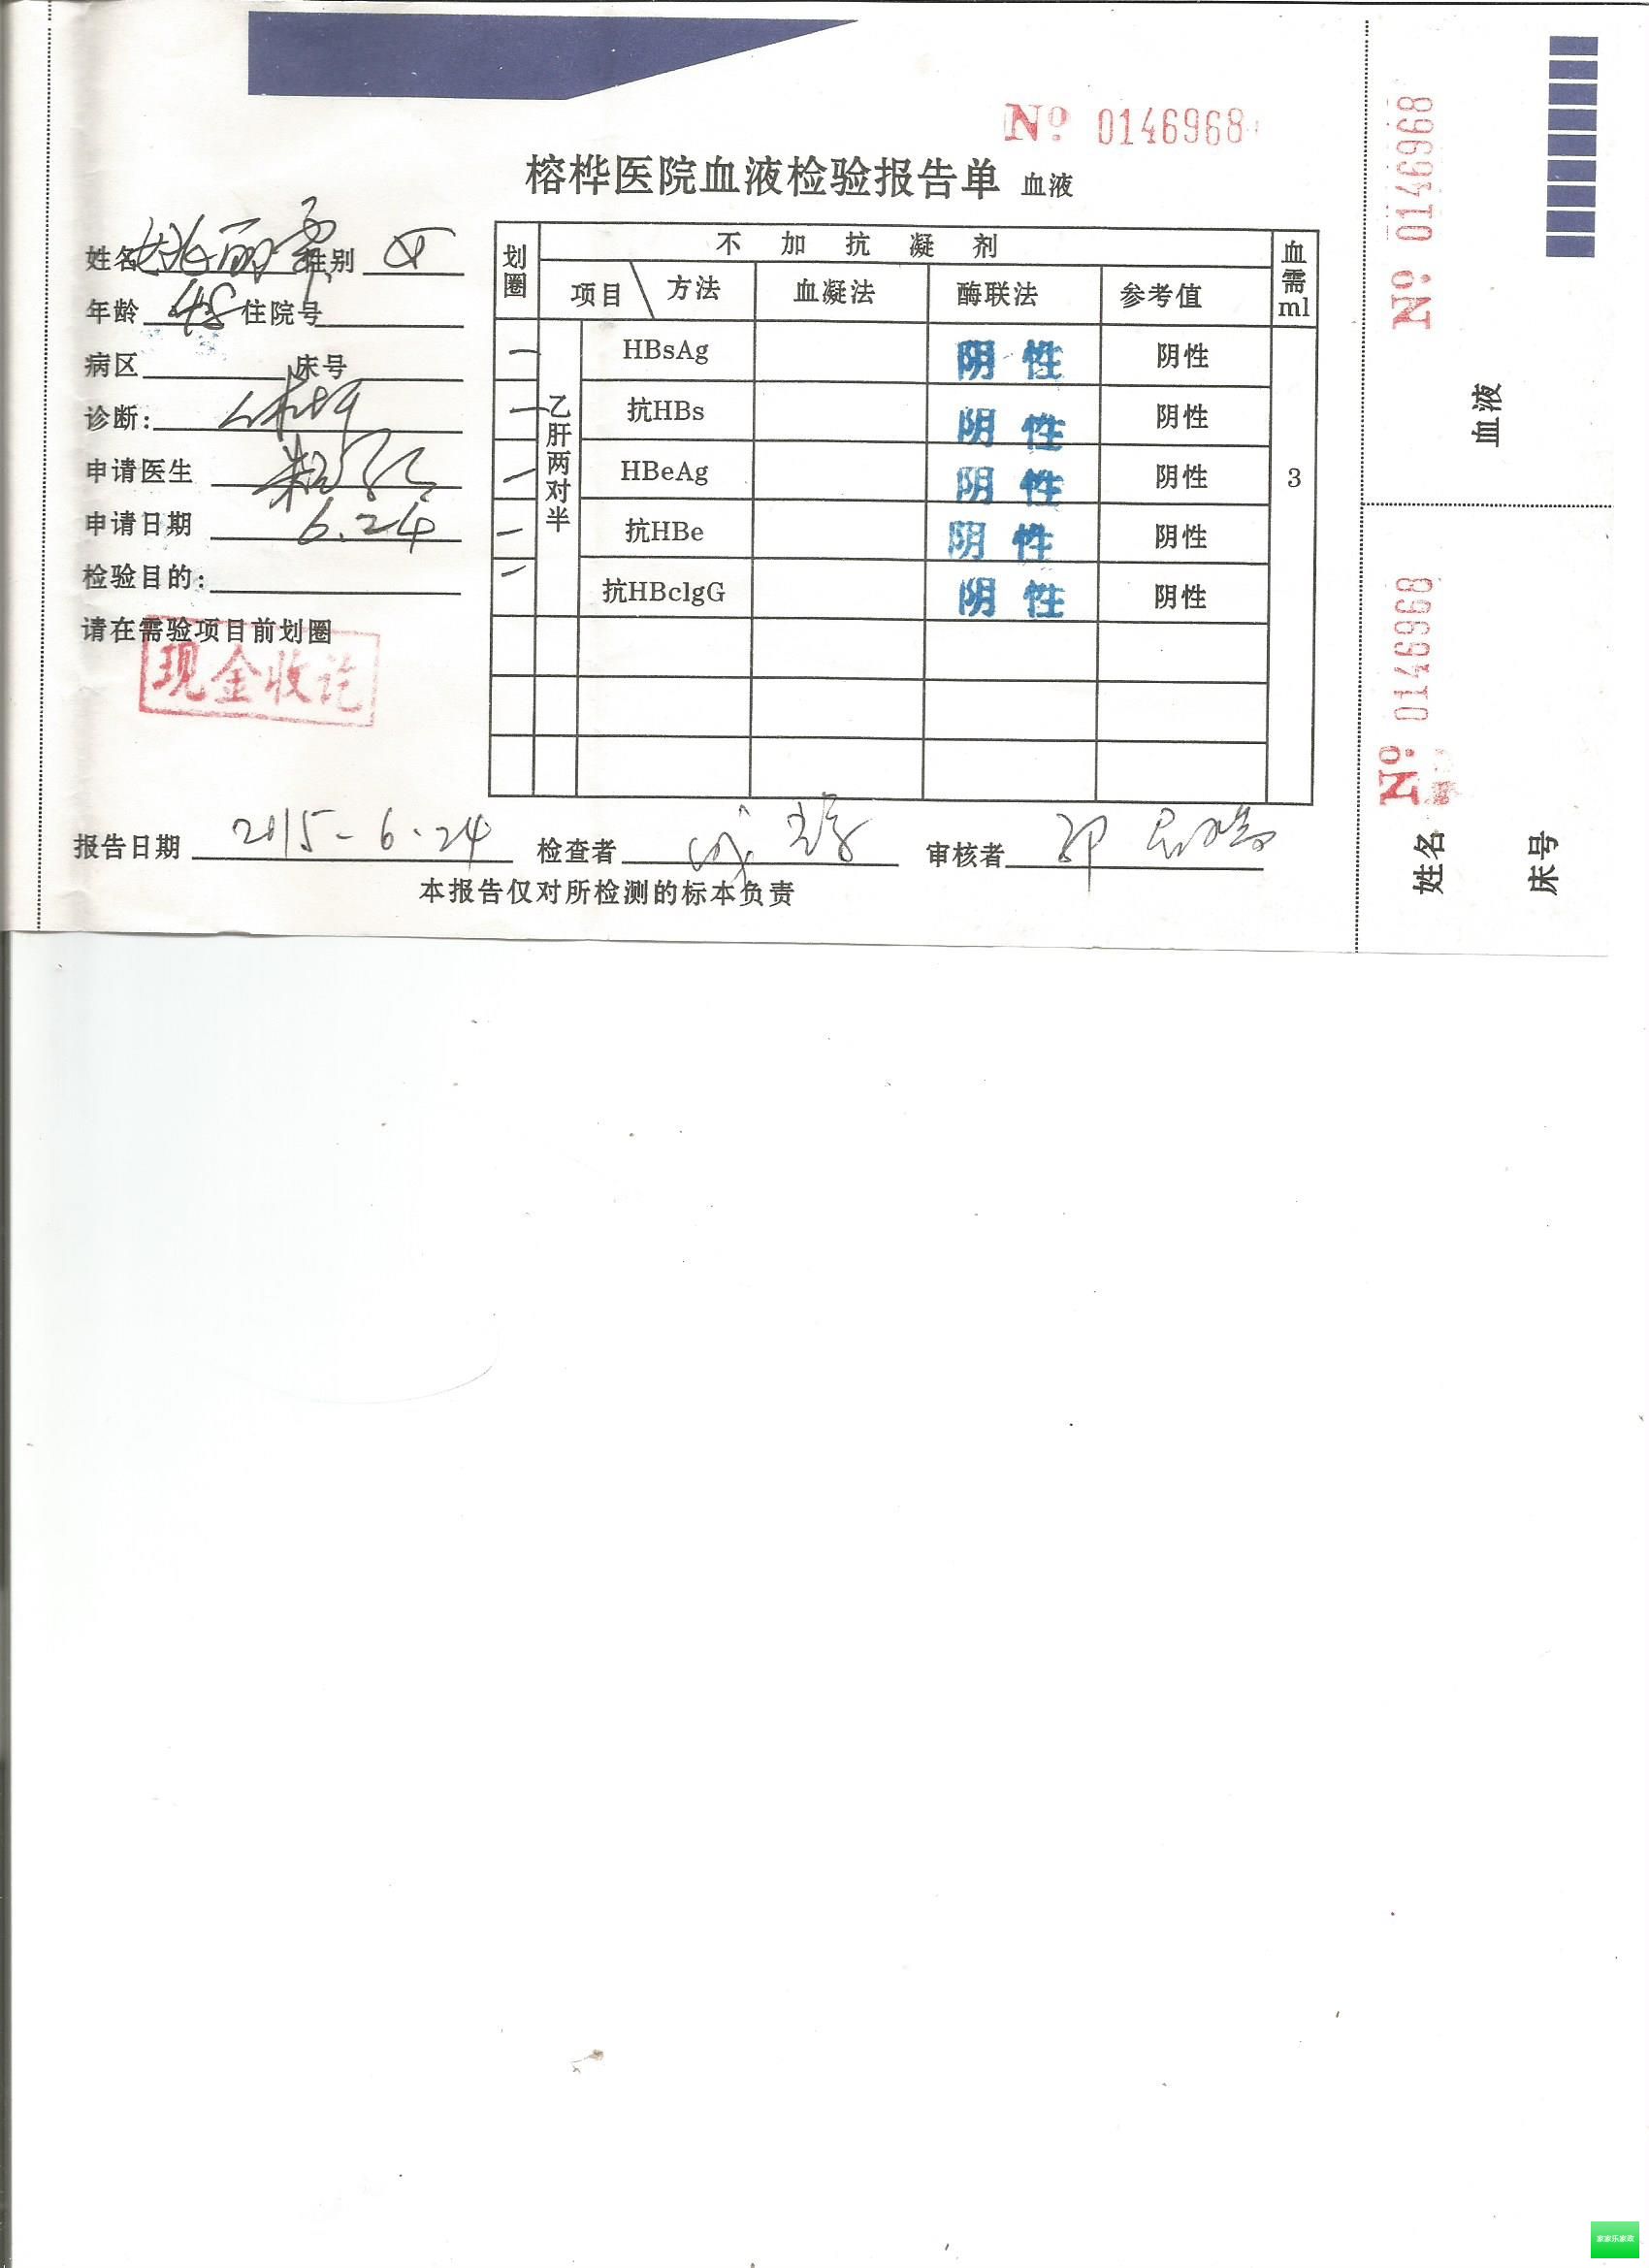 № 0146968
榕桦医院血液检验报告单 血液
姓名 性别 女
年龄 48 住院号
病区 床号
诊断：体检
申请医生
申请日期 6.24
检验目的：
请在需验项目前划圈
现金收讫
划圈 不加抗凝剂 血需ml
项目 方法 血凝法 酶联法 参考值
乙肝两对半
HBsAg 阴性 阴性
抗HBs 阴性 阴性
HBeAg 阴性 阴性 3
抗HBe 阴性 阴性
抗HBclgG 阴性 阴性
报告日期 2015-6.24 检查者 审核者
本报告仅对所检测的标本负责
№ 0146968
血液
№ 0146968
姓名
床号
家家乐家政